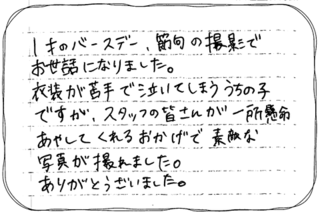 1才のバースデー、節句の撮影で
お世話になりました。
衣装が苦手で泣いてしまううちの子
ですが、スタッフの皆さんが一所懸命
あやしてくれるおかげで素敵な
写真が撮れました。
ありがとうございました。